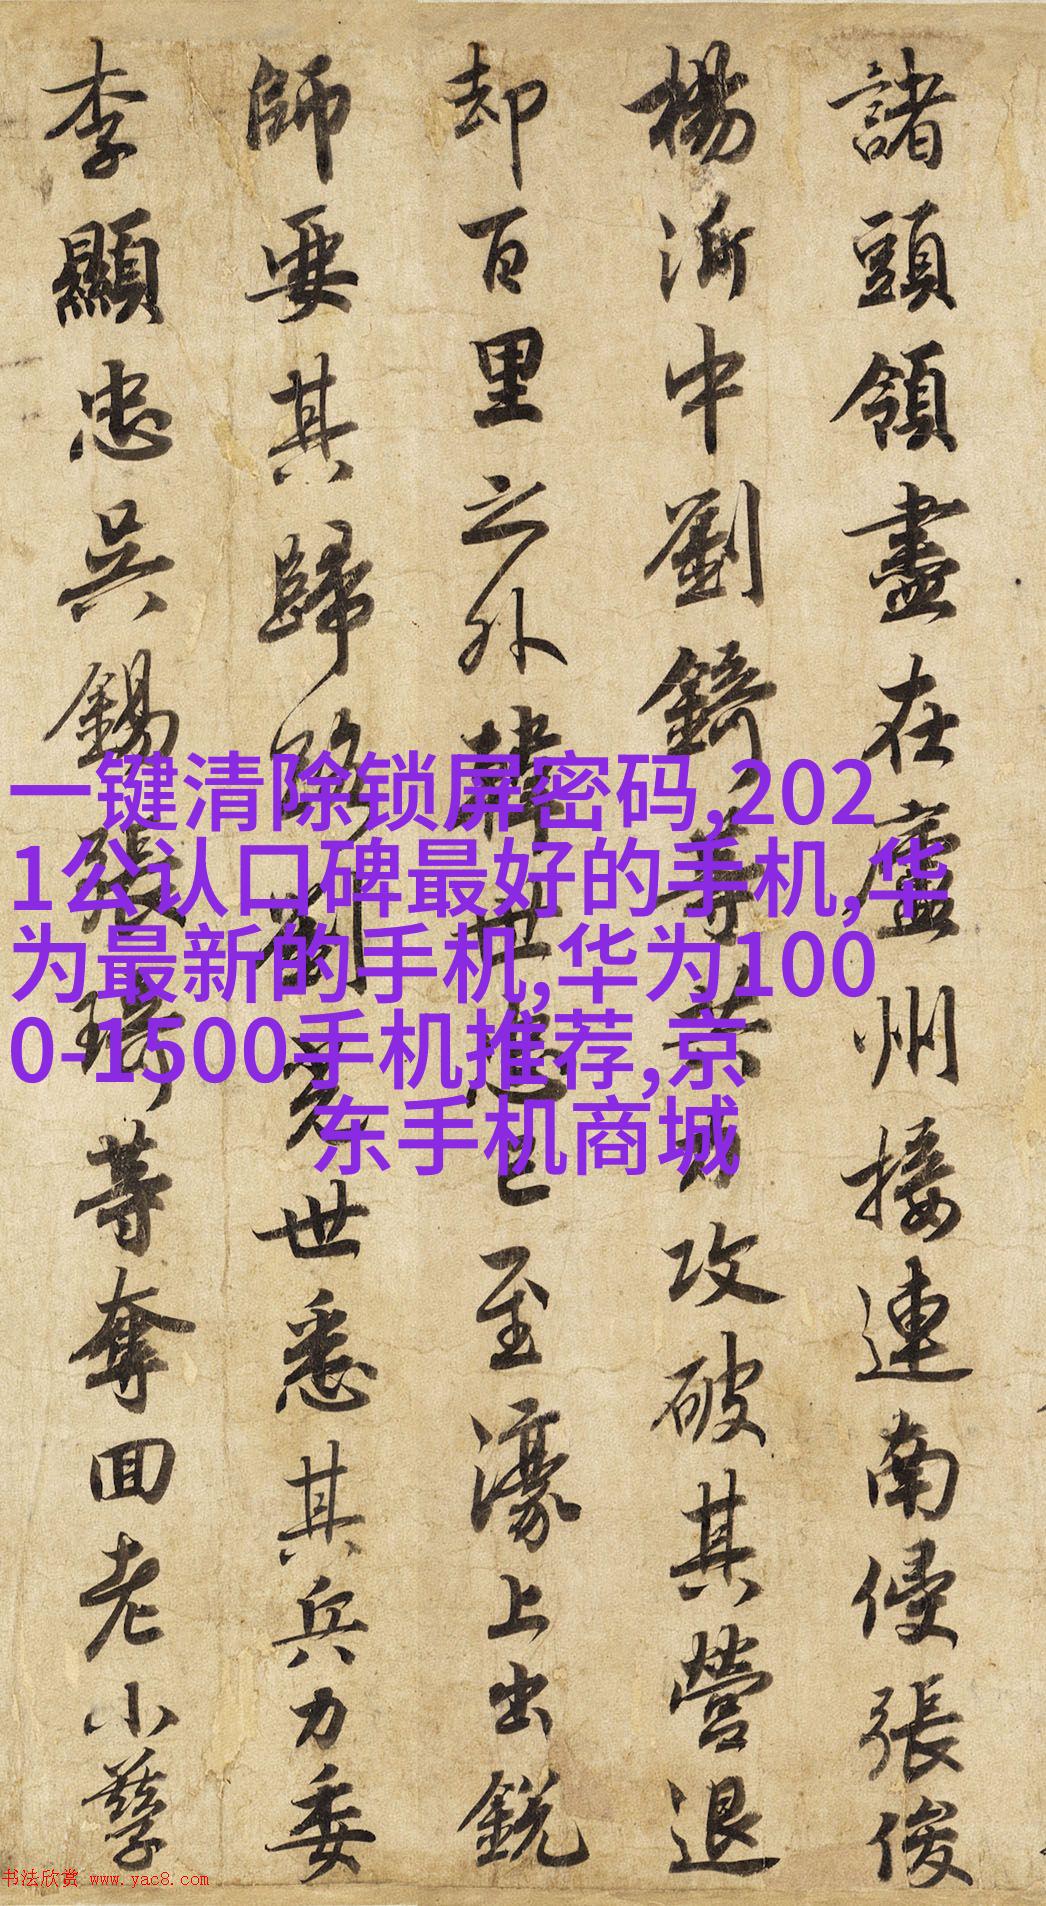 諸頭領盡在廬州接連南侵張俊
楊沂中劉錡等共力攻破其營退
却百里之外韓世忠已至濠上出銳
師要其歸路劉光世悉其兵力委
李顯忠吳錫張琦等奪回老小孳
一键清除锁屏密码,202
1公认口碑最好的手机,华
为最新的手机,华为100
0-1500手机推荐,京
东手机商城
书法欣赏 www.yac8.com